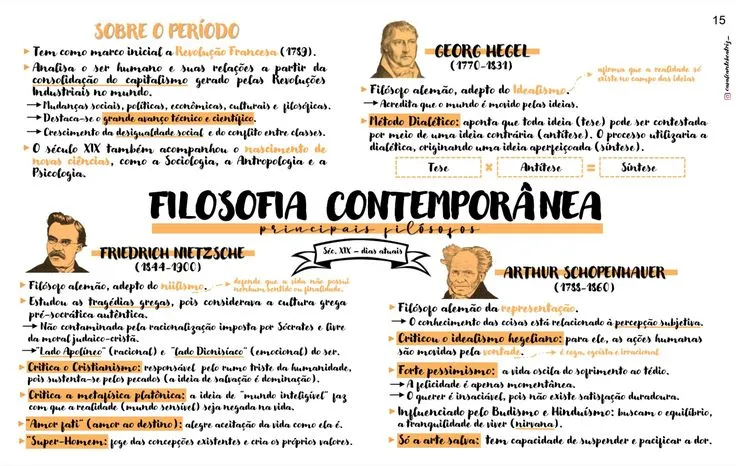 15
SOBRE O PERÍODO
Tem como marco inicial a Revolução Francesa (1789).
Analisa o ser humano e suas relações a partir da
consolidação do capitalismo gerado pelas Revoluções
Industriais no mundo.
→Mudanças sociais, políticas, econômicas, culturais e filosóficas.
→Destaca-se o grande avanço técnico e científico.
→Crescimento da desigualdade social e do conflito entre classes.
O século XIX também acompanhou o nascimento de
novas ciências, como a Sociologia, a Antropologia e a
Psicologia.
GEORG HEGEL
(1770-1831)
afirma que a realidade só
existe no campo das ideias
Filósofo alemão, adepto do Idealismo.
→Acredita que o mundo é movido pelas ideias.
Método Dialético: aponta que toda ideia (tese) pode ser contestada
por meio de uma ideia contrária (antítese). O processo utilizaria a
dialética, originando uma ideia aperfeiçoada (síntese).
Tese × Antítese = Síntese
FILOSOFIA CONTEMPORÂNEA
principais filósofos
Séc. XIX - dias atuais
FRIEDRICH NIETZSCHE
(1844-1900)
Filósofo alemão, adepto do niilismo.
defende que a vida não possui
nenhum sentido ou finalidade.
Estudou as tragédias gregas, pois considerava a cultura grega
pré-socrática autêntica.
→Não contaminada pela racionalização imposta por Sócrates e livre
da moral judaico-cristã.
→"Lado Apolíneo" (racional) e "lado Dionisíaco" (emocional) do ser.
Critica o Cristianismo: responsável pelo rumo triste da humanidade,
pois sustenta-se pelos pecados (a ideia de salvação é dominação).
Critica a metafísica platônica: a ideia de "mundo inteligível" faz
com que a realidade (mundo sensível) seja negada na vida.
"Amor fati" (amor ao destino): alegre aceitação da vida como ela é.
"Super-Homem: foge das concepções existentes e cria os próprios valores.
ARTHUR SCHOPENHAUER
(1788-1860)
Filósofo alemão da representação.
→O conhecimento das coisas está relacionado à percepção subjetiva.
Criticou o idealismo hegeliano: para ele, as ações humanas
são movidas pela vontade.
é cega, egoísta e irracional
Forte pessimismo: a vida oscila do sofrimento ao tédio.
→A felicidade é apenas momentânea.
→O querer é insaciável, pois não existe satisfação duradoura.
Influenciado pelo Budismo e Hinduísmo: buscam o equilíbrio,
a tranquilidade de viver (nirvana).
Só a arte salva: tem capacidade de suspender e pacificar a dor.